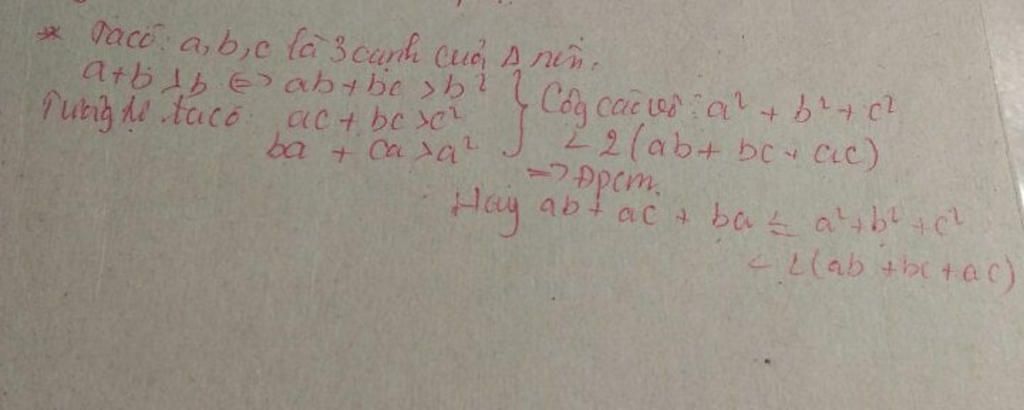 * Ta có: a,b,c là 3 cạnh của Δ nên.
a+b > b ⇔ ab + bc > b²
Tương tự ta có ac + bc > c²
ba + ca > a²
} Cộng các vế: a² + b² + c²
< 2(ab + bc + ac)
=> Đpcm.
Hay ab + ac + ba ≤ a² + b² + c²
< 2(ab + bc + ac)